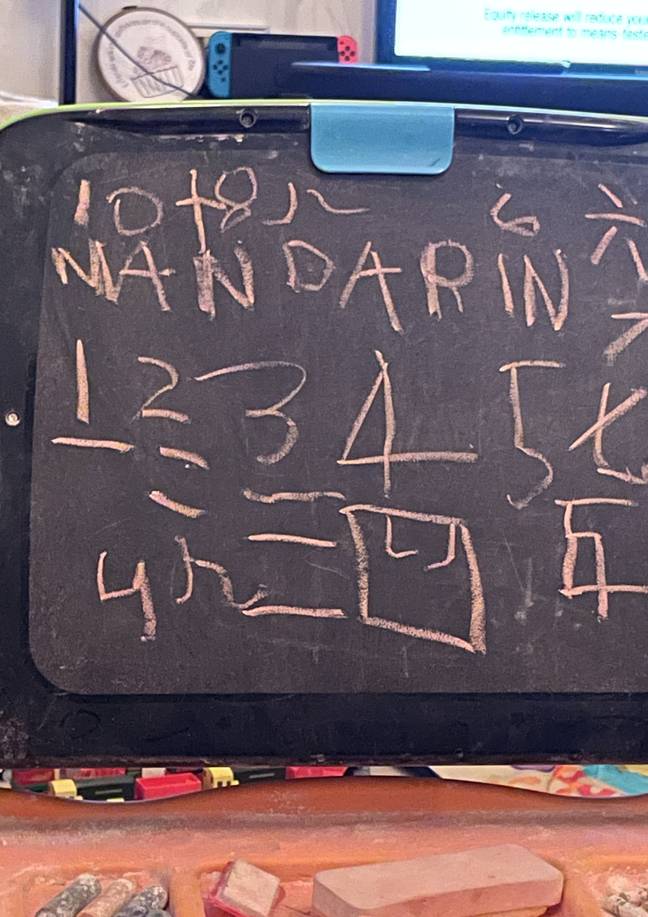 10 十 8 八 6 六
MANDARIN
1 2 3 4 5
一 二 三 四 五
Equity release will reduce your
entitlement to means-teste